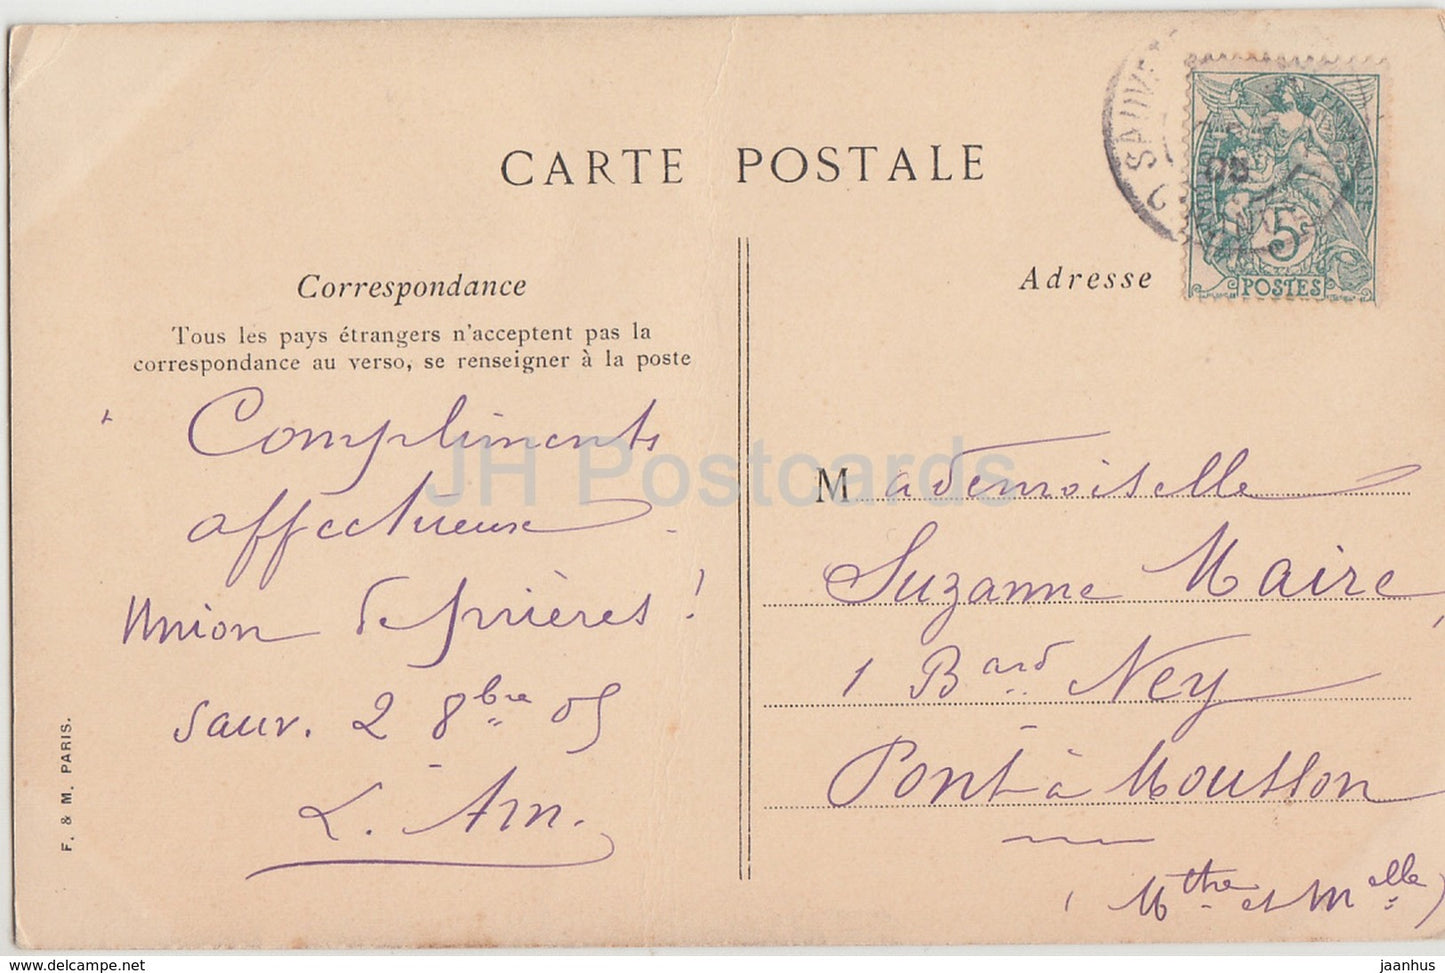 CARTE POSTALE
Correspondance
Tous les pays étrangers n'acceptent pas la
correspondance au verso, se renseigner à la poste
Compliments
affectueux
Union de prières !
Sauv. 2 8bre 05
L. Arn.
F. & M. PARIS.
Adresse
Mademoiselle
Suzanne Maire
1 Bard Ney
Pont à Mousson
(Mthe et Melle)
SAUVE
05
FRANÇAISE
5
POSTES
JH Postcards
www.delcampe.net
jaanhus